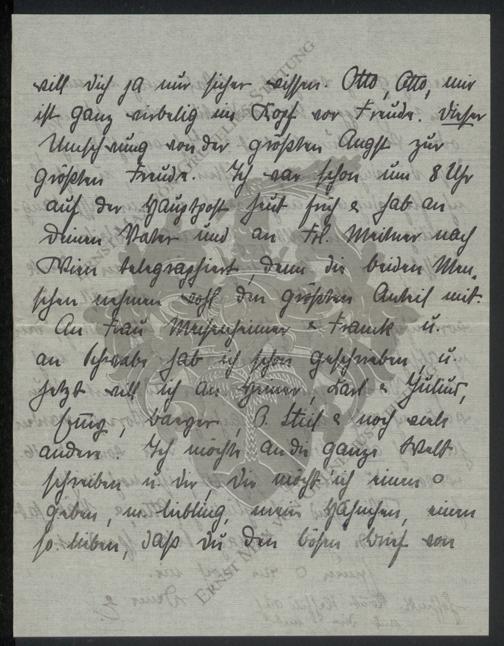 will Dich ja nur sicher wissen. Otto, Otto, mir
ist ganz wirbelig im Kopf vor Freude. Dieser
Umschwung von der größten Angst zur
größten Freude. Ich war schon um 8 Uhr
auf der Hauptpost heut früh & hab an
deinen Vater und an Frl. Meitner nach
Wien telegraphiert denn die beiden Men-
schen nehmen wohl den größten Anteil mit.
An Frau Meisenheimer & Franck u.
an Schwabs hab ich schon geschrieben, u.
jetzt will ich an Heiner, Karl & Julius,
baeyer & noch viele
andere. Ich möchte an die ganze Welt
schreiben u. dir Dir möcht ich einen o
geben, m. Liebling, mein Hähnchen, einen
so lieben, daß du den bösen Brief von
ERNST
STIFTUNG